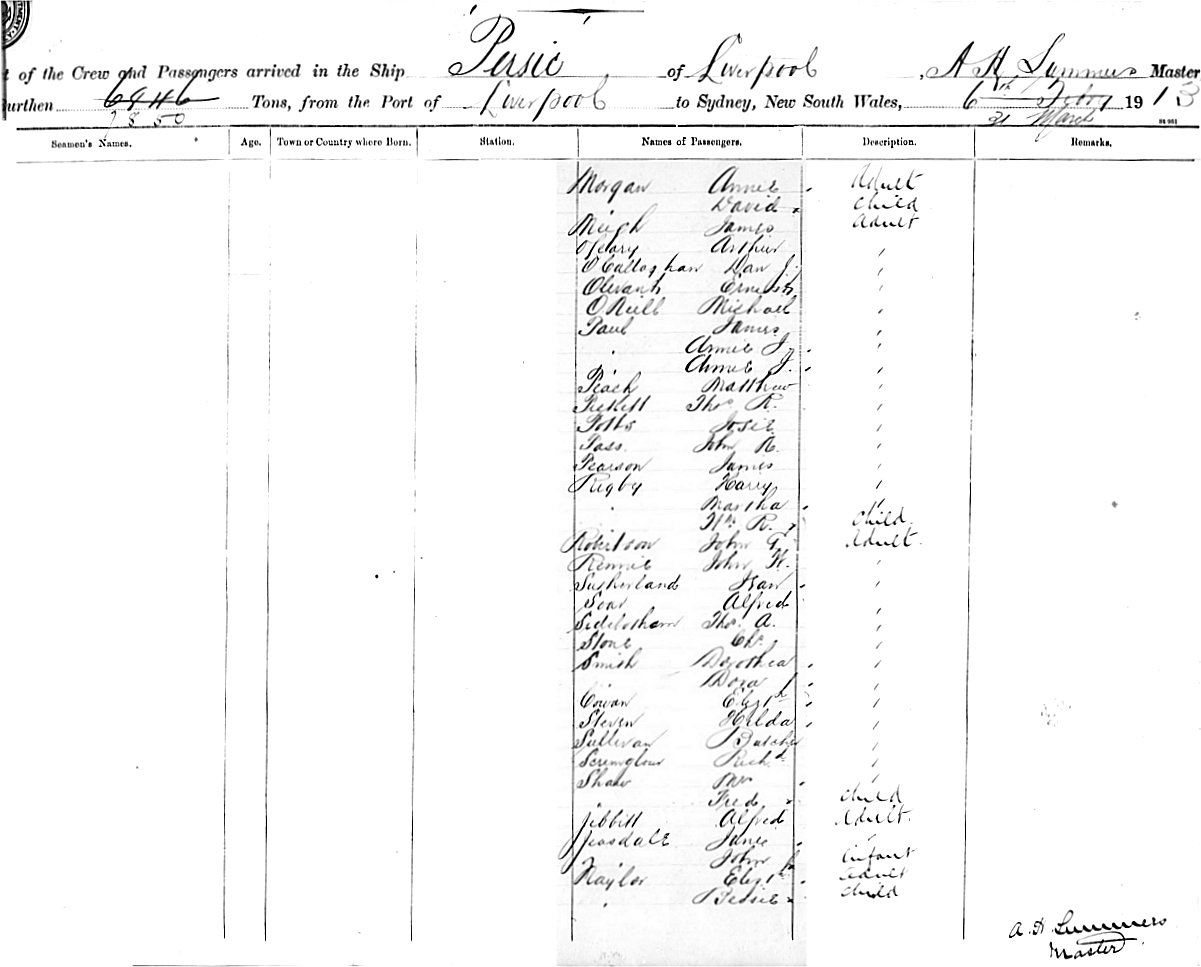 of the Crew and Passengers arrived in the Ship Persic, of Liverpool, A H Summers Master
urthen 6846 Tons, from the Port of Liverpool to Sydney, New South Wales, 6th Feby 1913
7850 31 March
Seamen's Names. Age. Town or Country where Born. Station. Names of Passengers. Description. Remarks.
Morgan Annie Adult
David Child
James Adult
O'Leary Arthur "
O'Callaghan Dan J. "
Olivant Ernest "
O'Neill Michael "
Paul James "
" Annie J. "
" Annie J. "
Peach Matthew "
Pickett Thos R. "
Potts Josie "
Pass John R. "
Pearson James "
Rigby Harry "
" Martha "
Wm R. Child
Robertson John G. Adult
Rennie John W. "
Sutherland "
Soar Alfred "
Sidebotham Thos. A. "
Stone Chs "
Smith Dorothea "
" Dora "
Cowan Elizth "
Steven Hilda "
Sullivan "
Scrimgour Richd "
Shaw Mrs "
Fred Child
Tibbitt Alfred Adult
Teasdale Jane "
" John Infant
Naylor Elizth Adult
" Bessie Child
A. H. Summers
Master